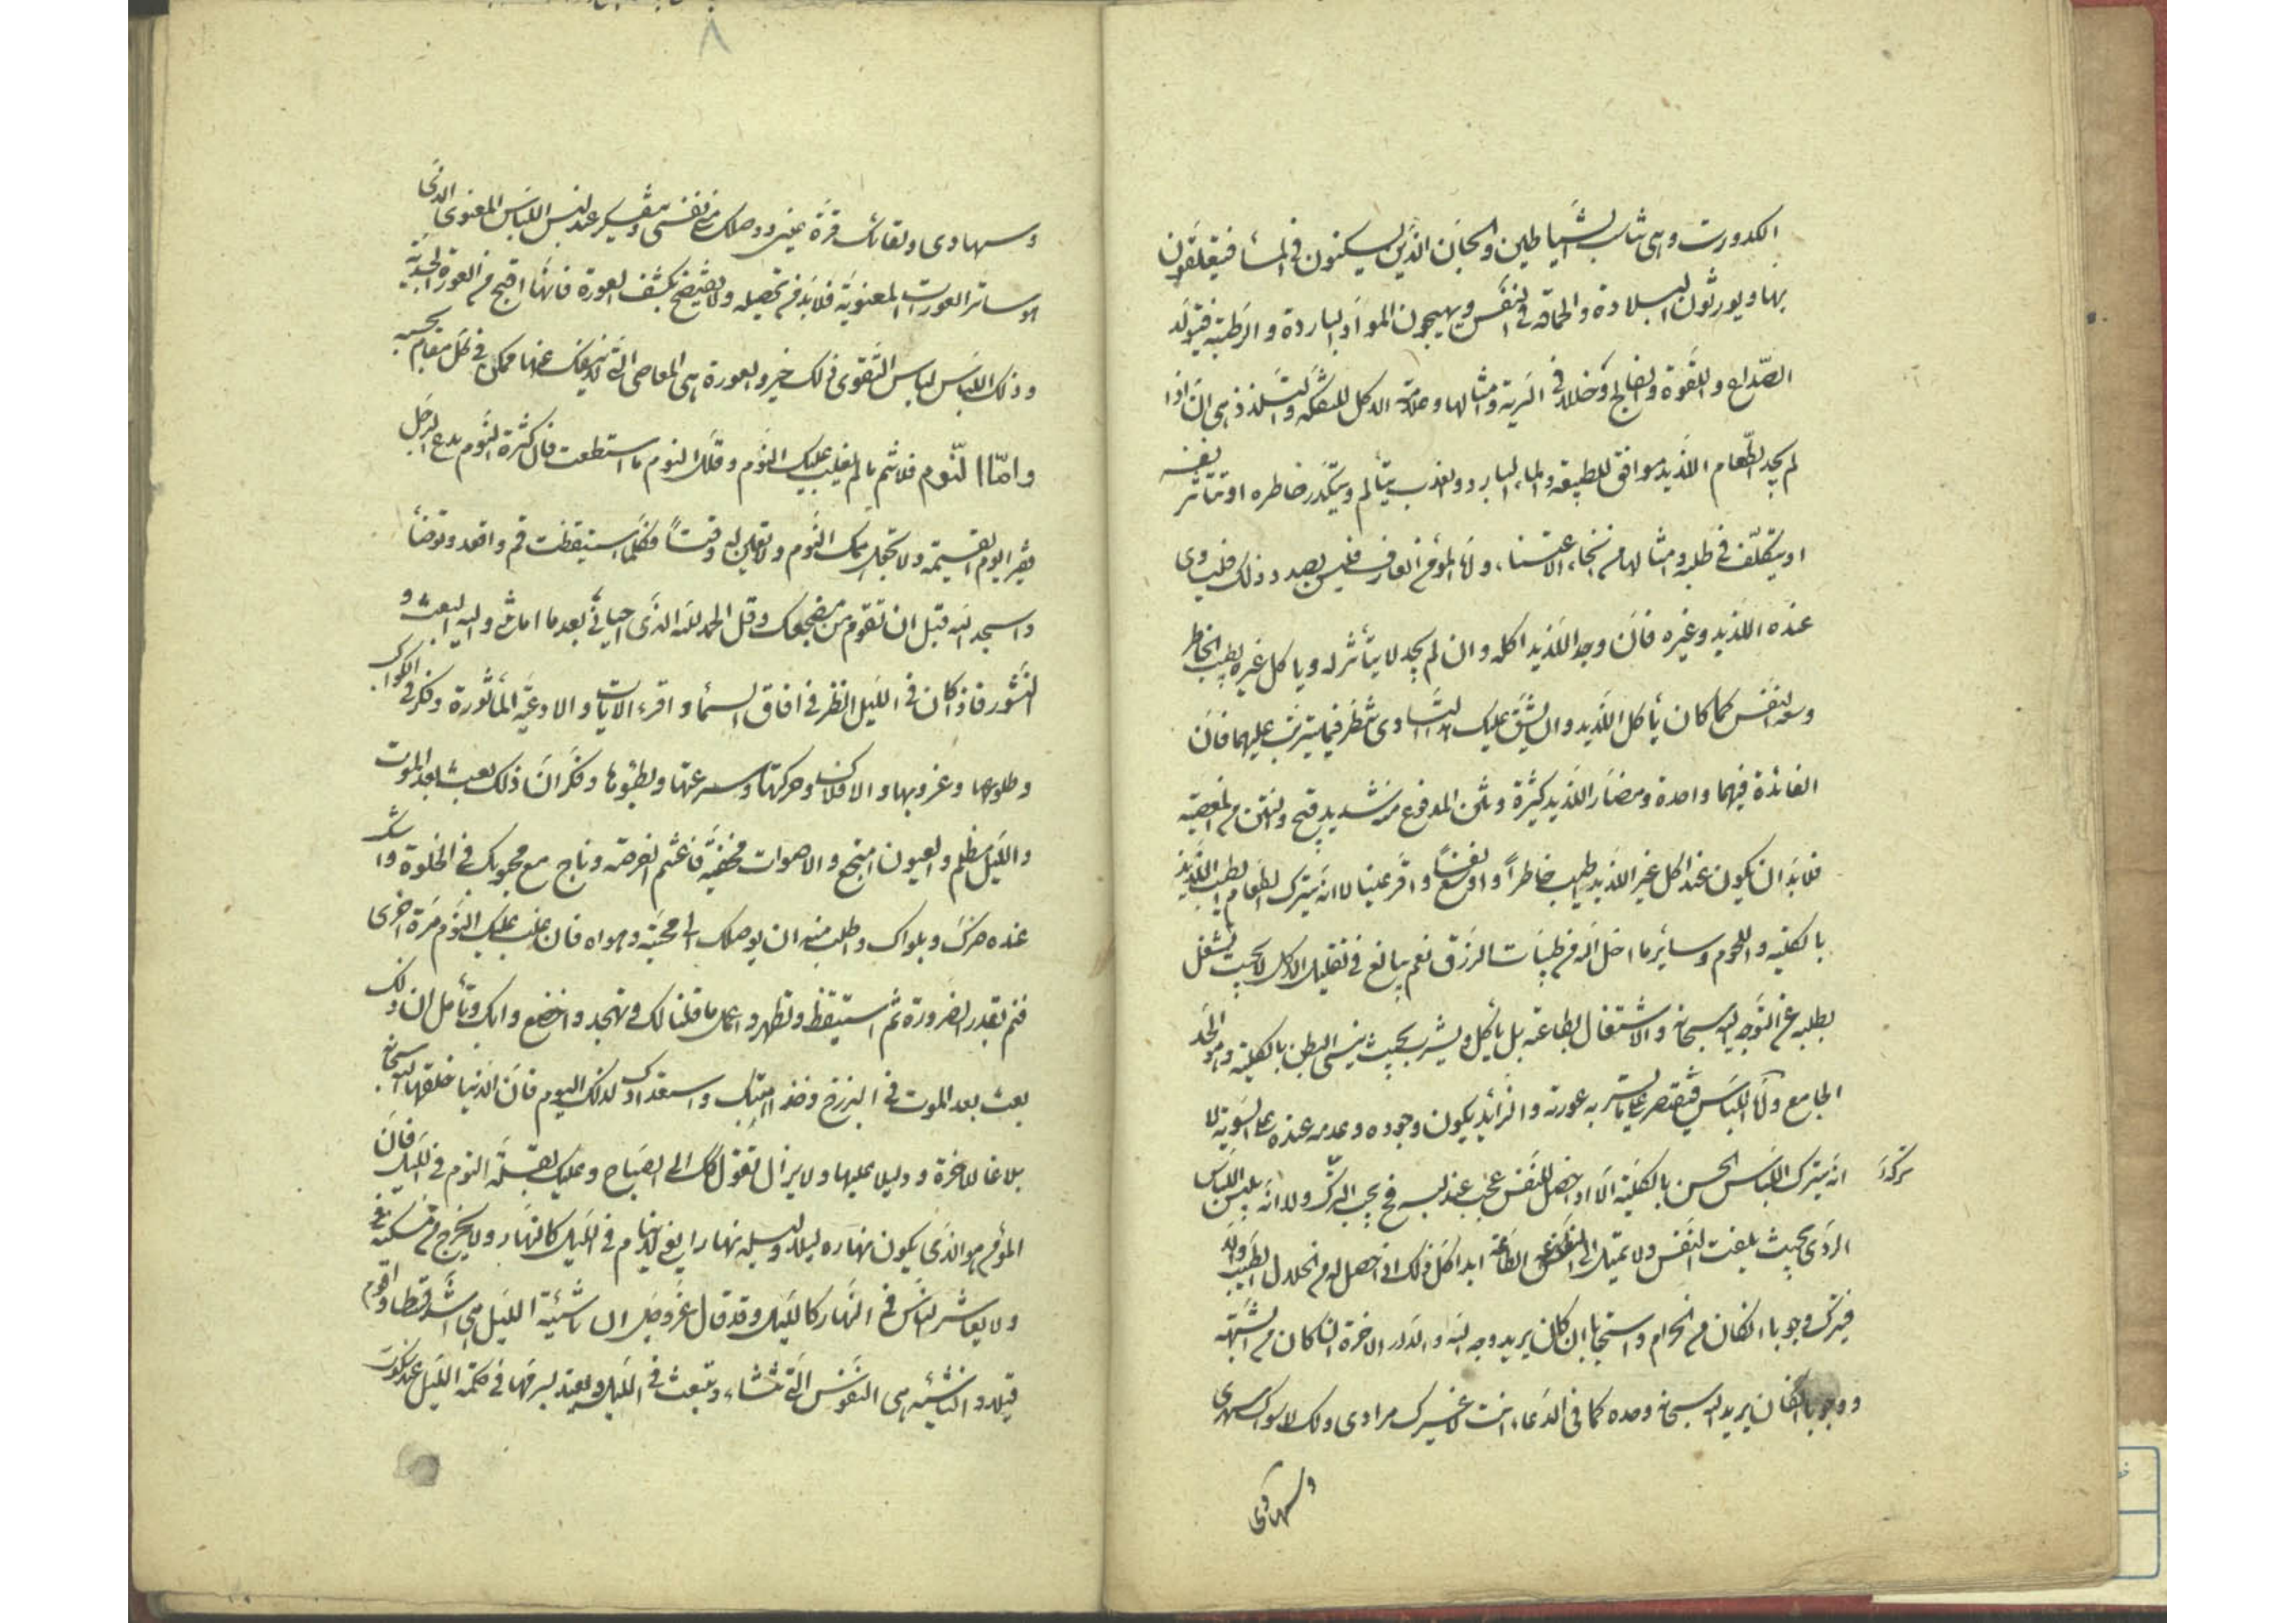 الكدورت وهى تناسب الشياطين والجان الذين يسكنون فى المشا فيتعلقون
بها ويورثون البلادة والحماقة فى النفس ويهيجون المواد الباردة والرطبة فيتولد
الصداع واللقوة والفالج وخللا فى الرية وامثالها وعلامة الاكل للتفكه والتلذذ هى ان اذا
لم يجد الطعام اللذيذ موافق للطبيعة والماء البارد والعذب يتألم ويتكدر خاطره او تتأثر نفسه
او يتكلف فى طلبه وامثالها من انحاء الاعتناء واما المؤمن العارف فليس بصدد ذلك فليساوى
عنده اللذيذ وغيره فان وجد اللذيذ اكله وان لم يجد لا يتأثر له ويأكل غيره بطيب الخاطر
وسعة النفس كما كان يأكل اللذيذ وان يشق عليك هذا التساوى فنظر فيما يترتب عليهما فان
الفائدة فيهما واحدة ومضار اللذيذ كثيرة وثمن المدفوع من شديد قبح ونتن من المعصية
فلابد ان يكون عند اكل غير اللذيذ اطيب خاطراً واوسع نفساً واقر عينا لا انه يترك الطعام الطيب اللذيذ
بالكلية واللحوم وسائر ما احل الله من طيبات الرزق نعم يبالغ فى تقليل الاكل لا بحيث يشغل
بطلبه عن التوجه الى الله سبحانه والاشتغال بطاعته بل يأكل ويشرب بحيث ينسى البطن بالكلية وهو الحد
الجامع واما اللباس فيقتصر على ما يستر به عورته والزائد يكون وجوده وعدمه عنده على السوية لا
انه يترك اللباس الحسن بالكلية الا اذا حصل للنفس عجب عند لبسه فح يجب الترك ولا انه يلبس اللباس
تركه
الردى بحيث يلفت النفس ولا تميل الى الطاعة ابدا كل ذلك اذا حصل له من الحلال الطيب والا
فيترك وجوبا انكان من الحرام واستحبابا ان كان يريد وجه الله والدار الاخرة ان كان من الشبهة
ووجوبا انكان يريد الله سبحانه وحده كما فى الدعاء انت لا غيرك مرادى ولك لا سواك سهرى
وسهادى
وسهادى ولقائك قرة عينى ووصلك منى نفسى وتفكير عند لبس اللباس المعنوى الذى
هو ساتر العورات المعنوية فلابد من تحصيله ولا يفتضح بكشف العورة فانها اقبح من العورة الجسدية
وذلك اللباس لباس التقوى ذلك خير والعورة هى المعاصى التى لا ينفك عنها ممكن فى كل مقام بحسبه
واما النوم فلا تنم ما لم يغلب عليك النوم وقلل النوم ما استطعت فان كثرة النوم يدع الرجل
فقير ايوم القيمة ولا تجعل همك النوم ولا تعين له وقتاً فكلما استيقظت قم واقعد وتوضأ
واسجد لله قبل ان تقوم من مضجعك وقل الحمد لله الذى احيانى بعد ما اماتنى واليه البعث و
النشور فاذا كان فى الليل انظر فى افاق السماء واقرء الايات والادعية المأثورة وفكر فى الكواكب
وطلوعها وغروبها والافلاك وحركتها وسرعتها وبطؤها وفكر ان ذلك بعث بعد الموت
والليل مظلم والعيون هجع والاصوات مخفية فاغتنم الفرصة وناج مع محبوبك فى الخلوة واشك
عنده حزنك وبلواك واطلب منه ان يوصلك الى محبته وهواه فان غلب عليك النوم مرة اخرى
فنم بقدر الضرورة ثم استيقظ وتطهر واعمل ما قلنا لك وتهجد واخضع وابك وتأمل ان ذلك
بعث بعد الموت فى البرزخ وخذ اهبتك واستعدادك لذلك اليوم فان الدنيا خلقها الله سبحانه
بلاغا للاخرة ودليلا عليها ولا يزال تقول ذلك الى الصباح وعليك بقلة النوم فى الليل فان
المؤمن هو الذى يكون نهاره ليلا وليله نهارا يعنى لا ينام فى الليل كالنهار ولا يخرج من مسكنه
ولا يعاشر الناس فى النهار كالليل وقد قال عز وجل ان ناشئة الليل هى اشد وطا واقوم
قيلا والناشئة هى النفوس التى تنشاء وتنبعث فى الليل وليقيد لسرفها فى ظلمة الليل عند سكوت